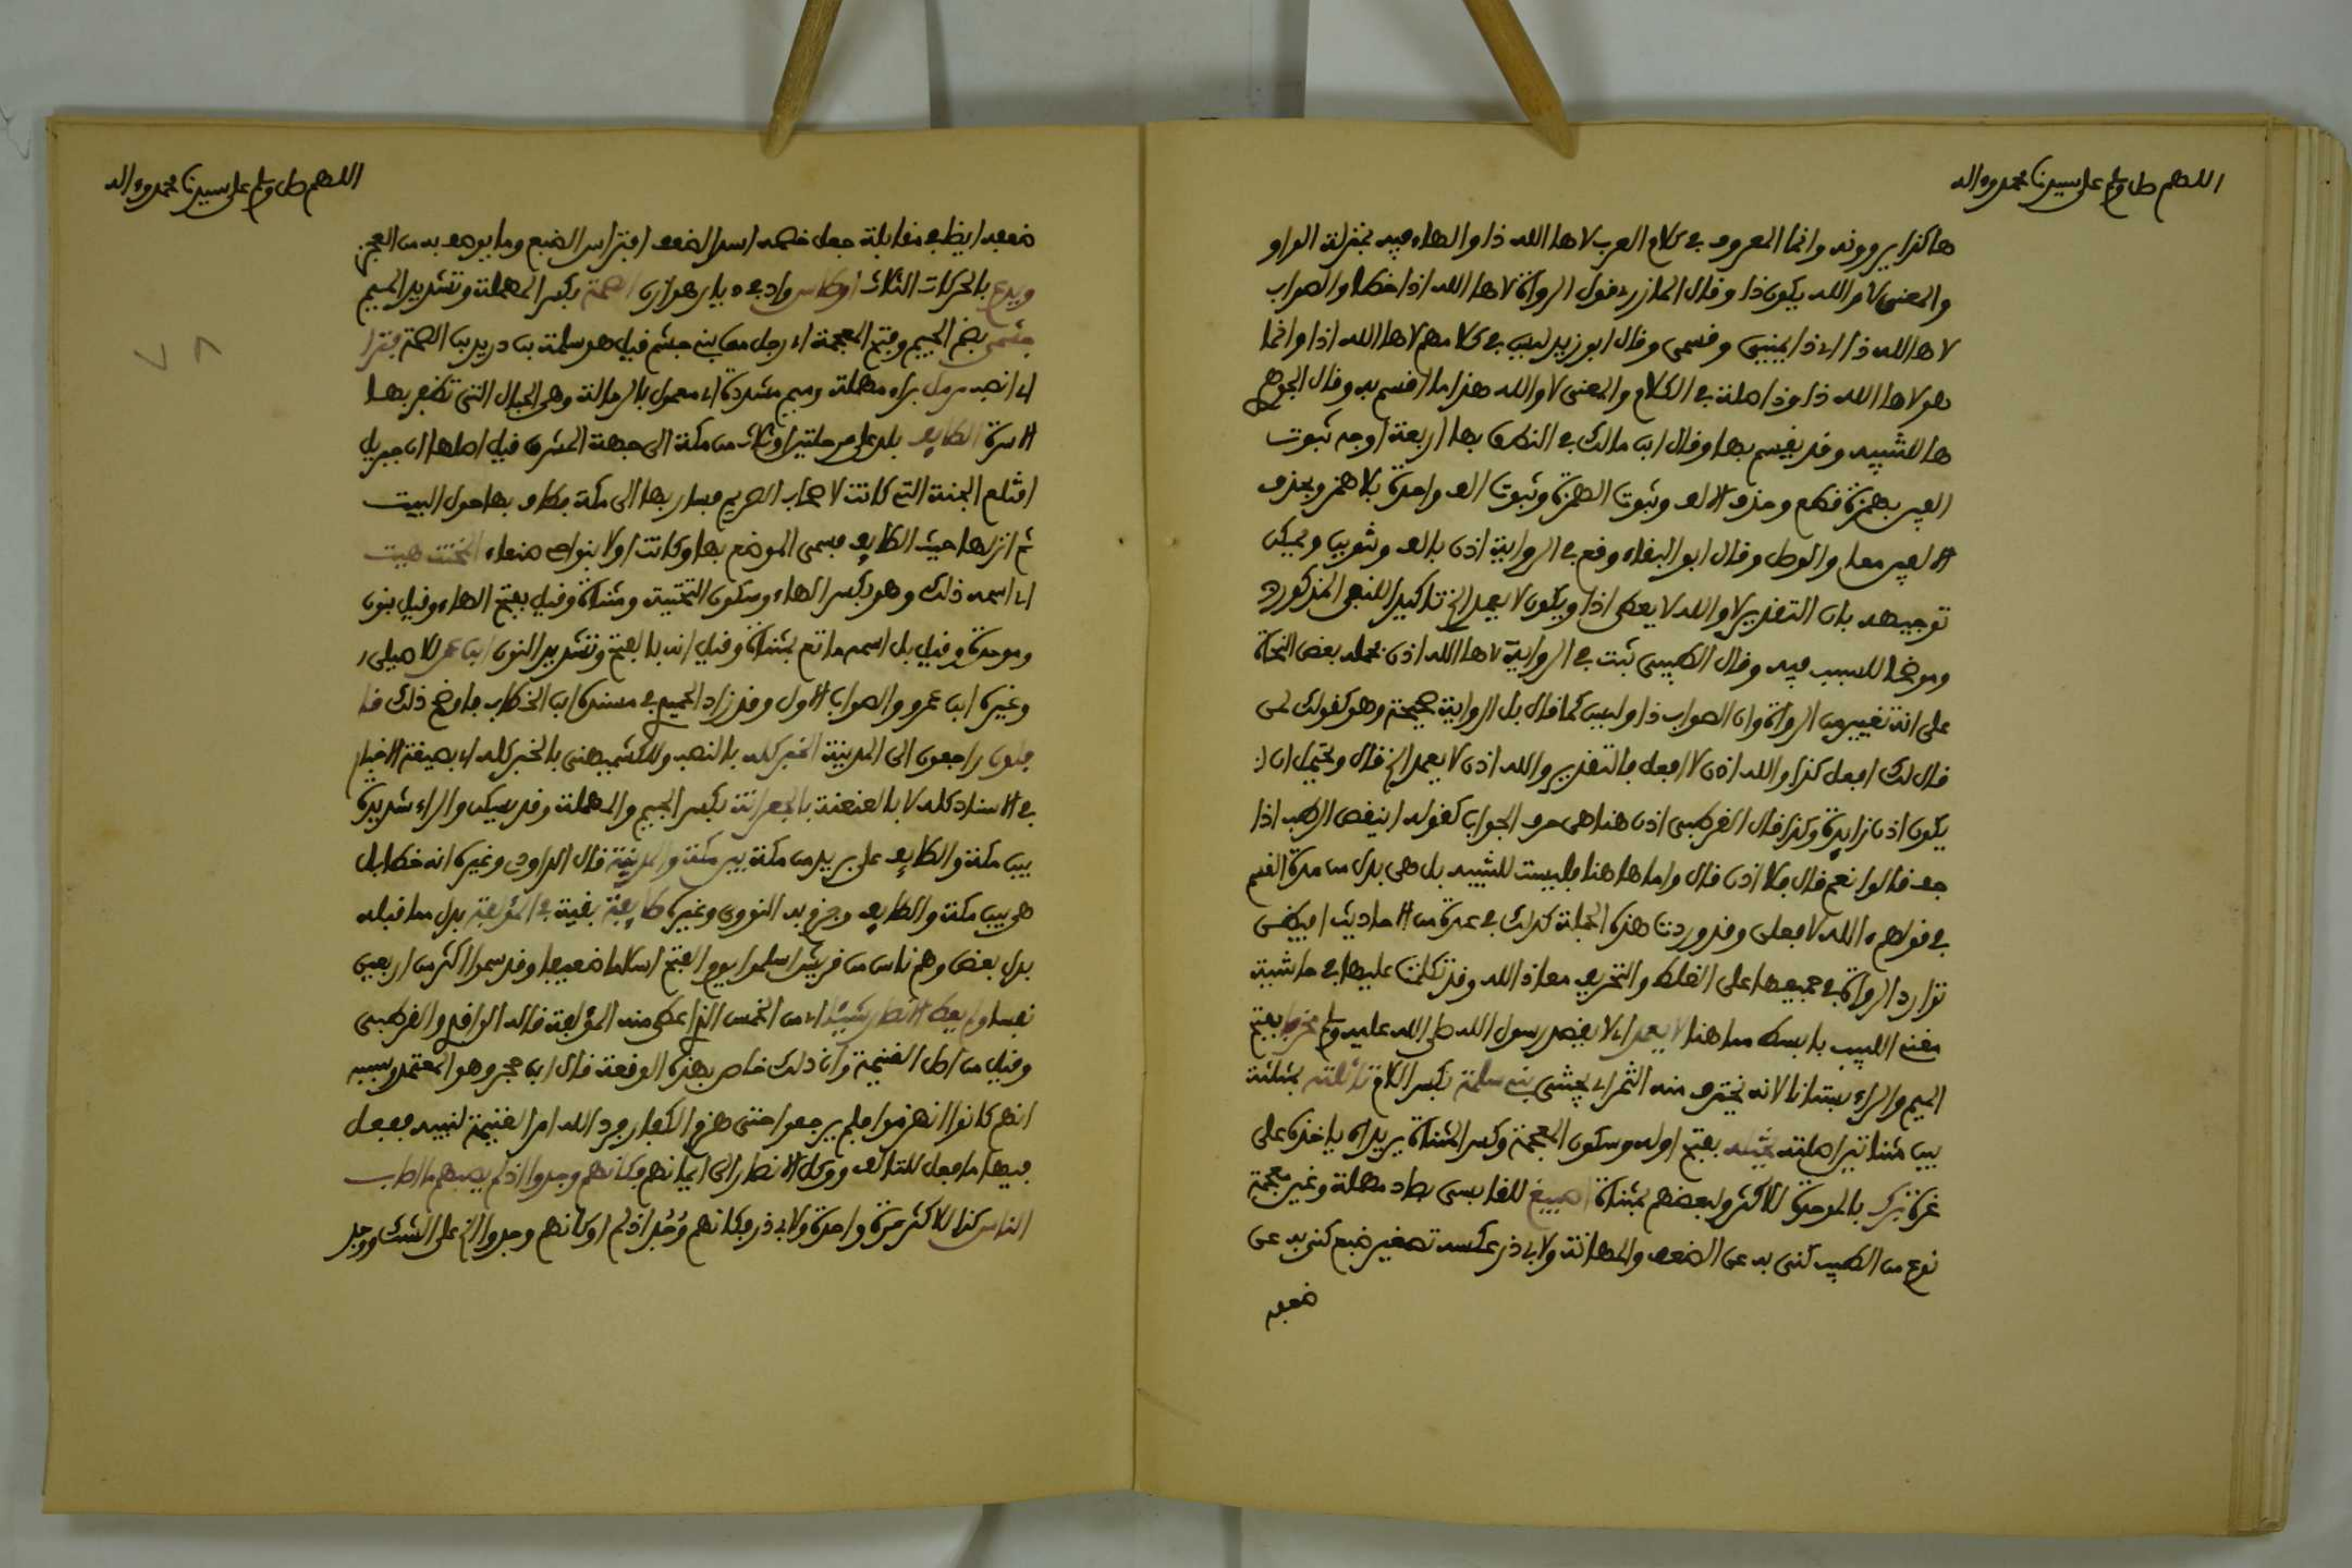 اللهم صل وسلم على سيدنا محمد واله
هاكذا يروونه وانما المعروف في كلام العرب لاها الله ذا والهاء فيه بمنزلة الواو
والمعنى لا والله يكون ذا وقال المازري قول الرواة لاها الله اذا خطأ والصواب
لاها الله ذا اي ذا يميني وقسمي وقال ابو زيد ليس في كلامهم لاها الله اذا وانما
هو لاها الله ذا وذا صلة في الكلام والمعنى لا والله هذا ما اقسم به وقال الجوهري
ها للتنبيه وقد يقسم بها وقال ابن مالك في النطق بها اربعة اوجه ثبوت
الفين بهمزة قطع وحذف الالف وثبوت الهمزة وثبوت الف واحدة بلا همز وبحذف
الالفين معا والوصل وقال ابو البقاء وقع في الرواية اذن بالف وتنوين ويمكن
توجيهه بان التقدير لا والله لا يعطى اذا ويكون لا يعمد الخ تاكيدا للنفي المذكور
وموضحا للسبب فيه وقال الطيبي ثبت في الرواية لاها الله اذن فحمله بعض النحاة
على انه تغيير من الرواة وان الصواب ذا وليس كما قال بل الرواية صحيحة وهو كقولك لمن
قال لك افعل كذا والله اذن لا افعل فالتقدير والله اذن لا يعمد الخ قال ويحتمل ان
يكون اذن زايدة وكذا قال القرطبي اذن هنا هي حرف الجواب كقوله اينقص الرطب اذا
جف قالوا نعم قال فلا اذن قال واما ها هنا فليست للتنبيه بل هي بدل من مدة القسم
في قولهم ءالله لافعلن وقد وردت هذه الجملة كذلك في عدة من الاحاديث افيكفي
توارد الرواة في جميعها على الغلط والتحريف معاذ الله وقد تكلمت عليها في حاشية
مغني اللبيب بابسط مما هنا لا يعمد اي لا يقصد رسول الله صلى الله عليه وسلم مخرفا بفتح
الميم والراء بستانا لانه يخترف منه الثمر اي يجتنى بني سلمة بكسر اللام تاثلته بمثلثة
بين مثناتين اصلته يختله بفتح اوله وسكون المعجمة وكسر المثناة يريد ان ياخذه على
غرة تبرك بالموحدة للاكثر ولبعضهم بمثناة اصيبغ للقابسي بصاد مهملة وغين معجمة
نوع من الطير كنى به عن الضعف والمهانة ولابي ذر عكسه تصغير ضبع كنى به عن
ضعفه
اللهم صل وسلم على سيدنا محمد واله
ضعفه ايضا في مقابلة جعل خصمه اسدا لضعف افتراس الضبع وما يوصف به من العجز
ويدع بالحركات الثلاث اوطاس واد في ديار هوازن الصمة بكسر المهملة وتشديد الميم
جشمي بضم الجيم وفتح المعجمة اي رجل من بني جشم قيل هو سلمة بن دريد بن الصمة فنزا
اي انصب مرمل براء مهملة وميم مشددة اي معمول بالرمالة وهي الحبال التي تضفر بها
الاسرة الطايف بلد على مرحلتين او ثلاث من مكة الى جهة المشرق قيل اصلها ان جبريل
اقتلع الجنة التي كانت لاصحاب الصريم فسار بها الى مكة فطاف بها حول البيت
ثم انزلها حيث الطايف فسمي الموضع بها وكانت اولا بنواحي صنعاء المخنث هيت
اي اسمه ذلك وهو بكسر الهاء وسكون التحتية ومثناة وقيل بفتح الهاء وقيل بنون
وموحدة وقيل بل اسمه ماتع بمثناة وقيل انه بالفتح وتشديد النون ابن عمر للاصيلي
وغيره ابن عمرو والصواب الاول وقد زاد الحميدي في مسنده ابن الخطاب فاوضح ذلك قا
فلون راجعون الى المدينة الخبر كله بالنصب وللكشميهني بالخبر كله اي بصيغة الاخبار
في الاسناد كله لا بالعنعنة بالجعرانة بكسر الجيم والمهملة وقد تسكن والراء شديدة
بين مكة والطايف على بريد من مكة بين مكة والمدينة قال الداودي وغيره انه خطا بل
هي بين مكة والطايف وجزم به النووي وغيره طايفة بقية في المؤلفة بدل مما قبله
بدل بعض وهم ناس من قريش اسلموا يوم الفتح اسلاما ضعيفا وقد سموا اكثر من اربعين
نفسا ولم يعط الانصار شيئا اي من الخمس الذي اعطى منه المؤلفة قاله الواقدي والقرطبي
وقيل من اصل الغنيمة وان ذلك خاص بهذه الوقعة قال ابن حجر وهو المعتمد وسببه
انهم كانوا انهزموا فلم يرجعوا حتى هزم الكفار فرد الله امر الغنيمة لنبيه ففعل
فيها ما فعل للتالف ووكل الانصار الى ايمانهم فكانهم وجدوا اذ لم يصبهم ما اصاب
الناس كذا للاكثر مرة واحدة ولابي ذر فكانهم وُجُد اذ لم او كانهم وجدوا الخ على الشك ووجد